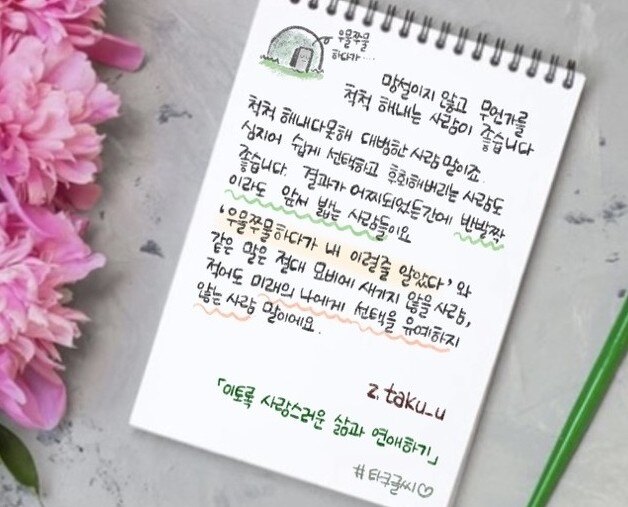 우물쭈물
하다가...
망설이지 않고 무언가를
척척 해내는 사람이 좋습니다
척척 해내다못해 대범한 사람 말이죠
심지어 쉽게 선택하고 후회해버리는 사람도
좋습니다. 결과가 어찌되었든간에 반발짝
이라도 앞서 밟는 사람들이요
'우물쭈물하다가 내 이럴줄 알았다' 와
같은 말은 절대 묘비에 새기지 않을 사람,
적어도 미래의 나에게 선택을 유예하지
않는 사람 말이에요.
z.taku_u
「이토록 사랑스러운 삶과 연애하기」
#타쿠글씨♡